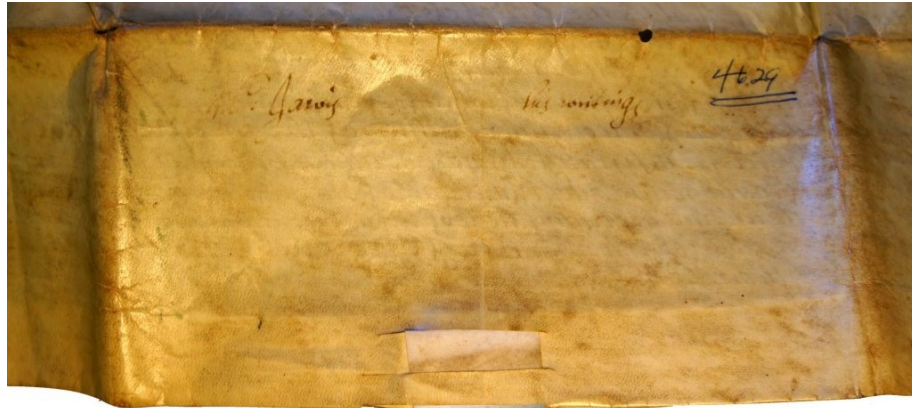 Mr. Jarvis his writings 46.29